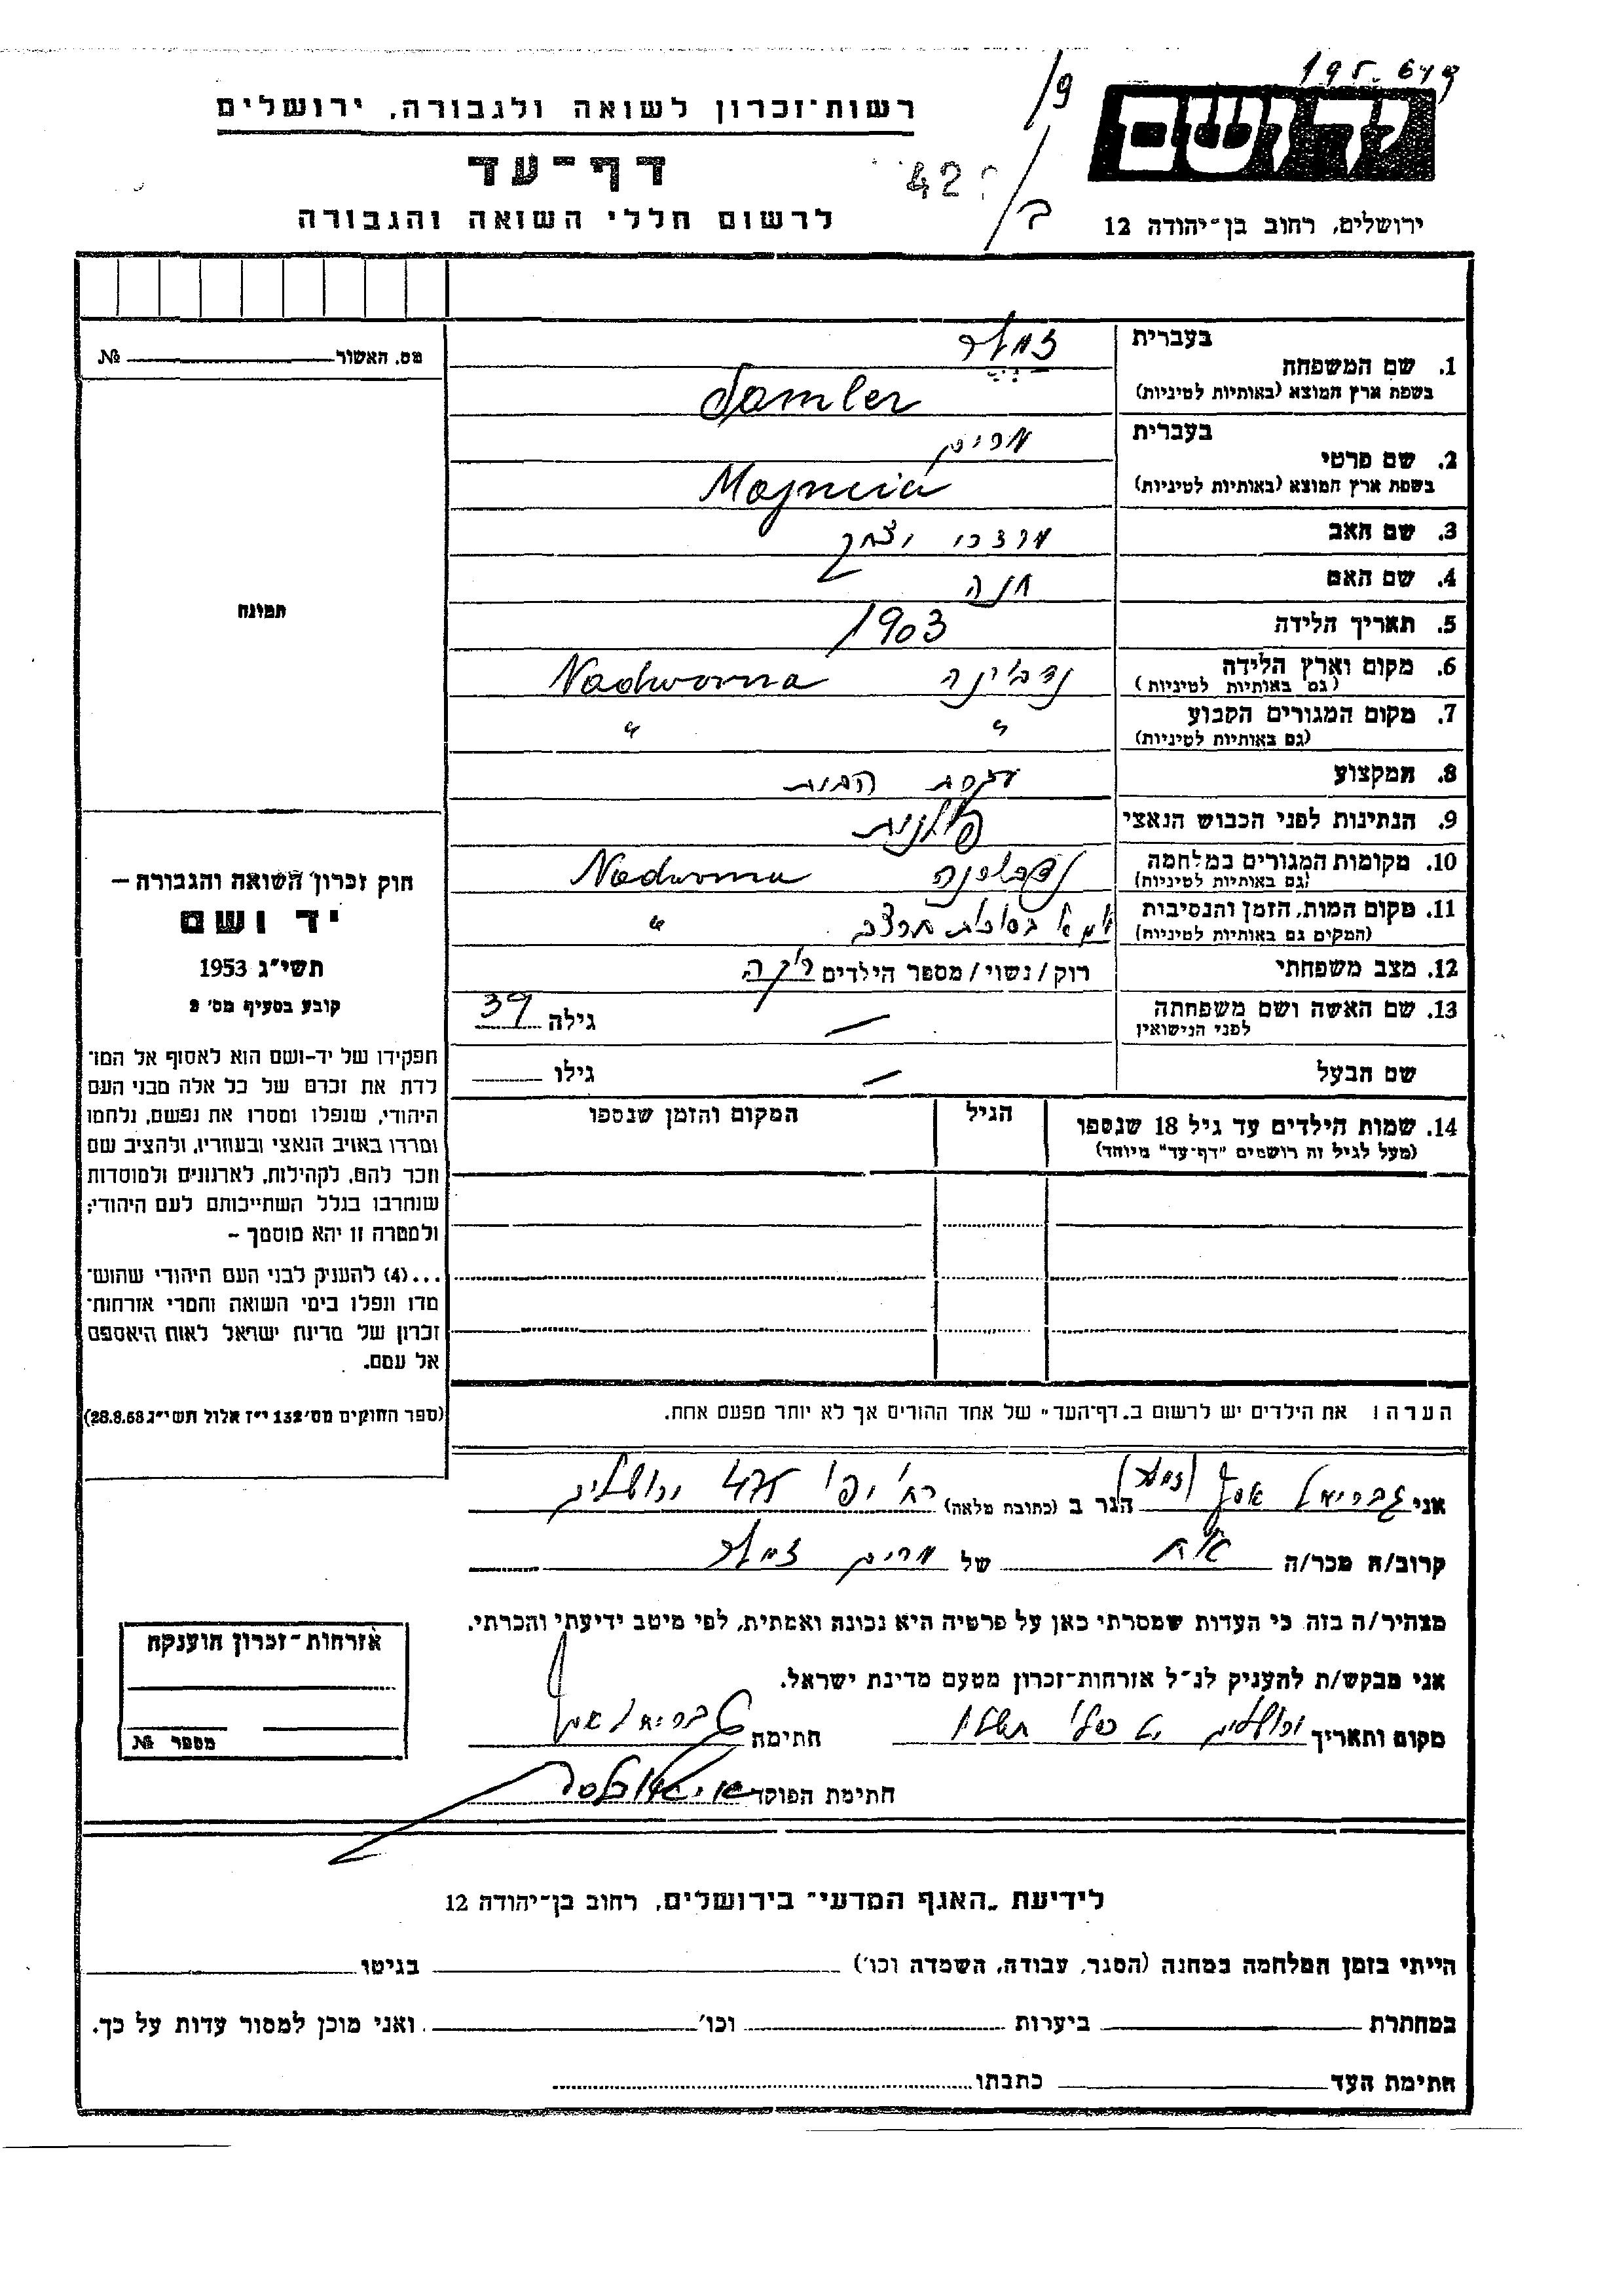 195.649
רשות-זכרון לשואה ולגבורה, ירושלים
19/
יד ושם
דף-עד
42
ב
לרשום חללי השואה והגבורה
ירושלים, רחוב בן-יהודה 12
מס. האשור № 
1. שם המשפחה
בעברית זמלר
בשפת ארץ המוצא (באותיות לטיניות) Samler
2. שם פרטי
בעברית מרים
בשפת ארץ המוצא (באותיות לטיניות)
3. שם האב מרדכי יצחק
4. שם האם חנה
5. תאריך הלידה 1903
6. מקום וארץ הלידה
(גם באותיות לטיניות) Nadworna
7. מקום המגורים הקבוע " "
(גם באותיות לטיניות)
8. המקצוע עקרת הבית
9. הנתינות לפני הכבוש הנאצי פולנית
10. מקומות המגורים במלחמה Nadworna
(גם באותיות לטיניות)
11. מקום המות, הזמן והנסיבות "
(המקום גם באותיות לטיניות)
12. מצב משפחתי רוק/נשוי/מספר הילדים
13. שם האשה ושם משפחתה — גילה 39
לפני הנישואין
שם הבעל — גילו
14. שמות הילדים עד גיל 18 שנספו הגיל המקום והזמן שנספו
(מעל לגיל זה רושמים "דף-עד" מיוחד)
תמונה
חוק זכרון השואה והגבורה —
יד ושם
תשי"ג 1953
קובע בסעיף מס' 2
תפקידו של יד-ושם הוא לאסוף אל המו־
לדת את זכרם של כל אלה מבני העם
היהודי, שנפלו ומסרו את נפשם, נלחמו
ומרדו באויב הנאצי ובעוזריו, ולהציב שם
וזכר להם, לקהילות, לארגונים ולמוסדות
שנחרבו בגלל השתייכותם לעם היהודי;
ולמטרה זו יהא מוסמך –
...(4) להעניק לבני העם היהודי שהוש־
מדו ונפלו בימי השואה והמרי אזרחות־
זכרון של מדינת ישראל לאות היאספם
אל עמם.
(ספר החוקים מס' 132 י"ז אלול תשי"ג 28.8.53)
הערה: את הילדים יש לרשום ב„דף-העד" של אחד ההורים אך לא יותר מפעם אחת.
אני גבריאל אסף (זמלר) הגר ב (כתובת מלאה) רח' יפו ירושלים
קרוב/ה מכר/ה אח של מרים זמלר
מצהיר/ה בזה כי העדות שמסרתי כאן על פרטיה היא נכונה ואמתית, לפי מיטב ידיעתי והכרתי.
אני מבקש/ת להעניק לנ"ל אזרחות-זכרון מטעם מדינת ישראל.
מקום ותאריך ירושלים חתימה גבריאל אסף
חתימת הפוקד
אזרחות-זכרון הוענקה
מספר №
לידיעת „האגף המדעי" בירושלים, רחוב בן-יהודה 12
הייתי בזמן המלחמה במחנה (הסגר, עבודה, השמדה וכו') בגיטו
במחתרת ביערות וכו' ואני מוכן למסור עדות על כך.
חתימת העד כתבתו